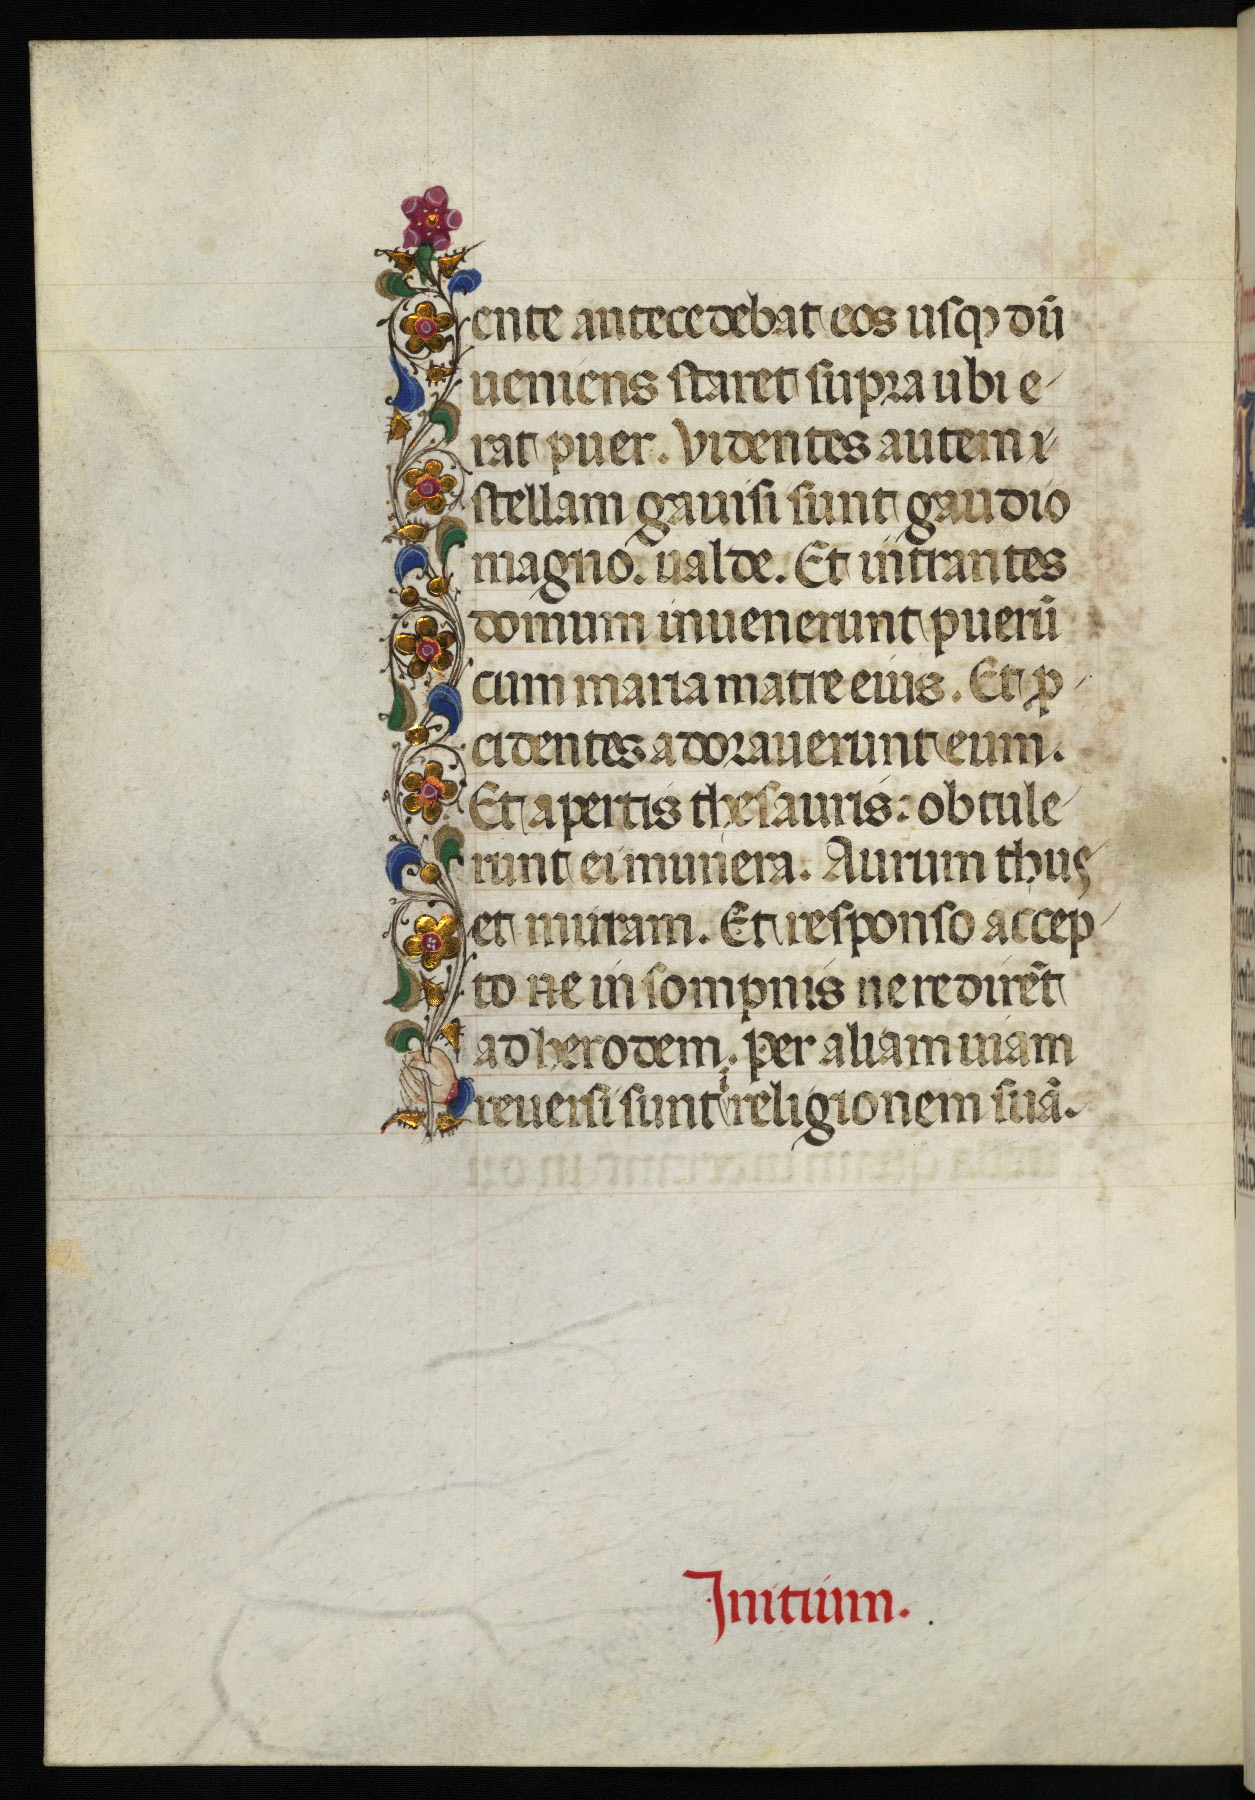 ente antecedebat eos usq dū
ueniens staret supra ubi e-
rat puer. Videntes autem
stellam gauisi sunt gaudio
magno. ualde. Et intrantes
domum inuenerunt puerū
cum maria matre eius. Et p-
cidentes adorauerunt eum.
Et apertis thesauris: obtule-
runt ei munera. Aurum thus
et mirram. Et responso accep-
to ne in sompnis ne redirēt
ad herodem. per aliam uiam
reuersi sunt religionem suā.
Initium.